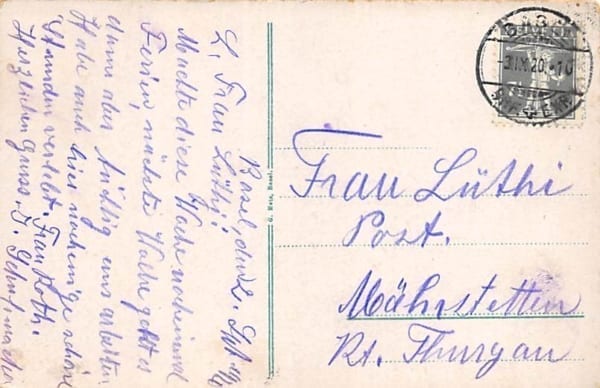 Basel, den 2. Spt.
L. Frau Lüthi!
Machte diese Woche noch einmal
Ferien, nächste Woche geht es
dann aber tüchtig ans arbeiten
Habe auch hier noch einige schöne
Stunden verlebt. Frau Roth.
Herzlichen Gruss. J.
G. Metz, Basel.
BASEL
-3.IX.20.-10
HELVETIA
Frau Lüthi
Post.
Mährstetten
Kt. Thurgau